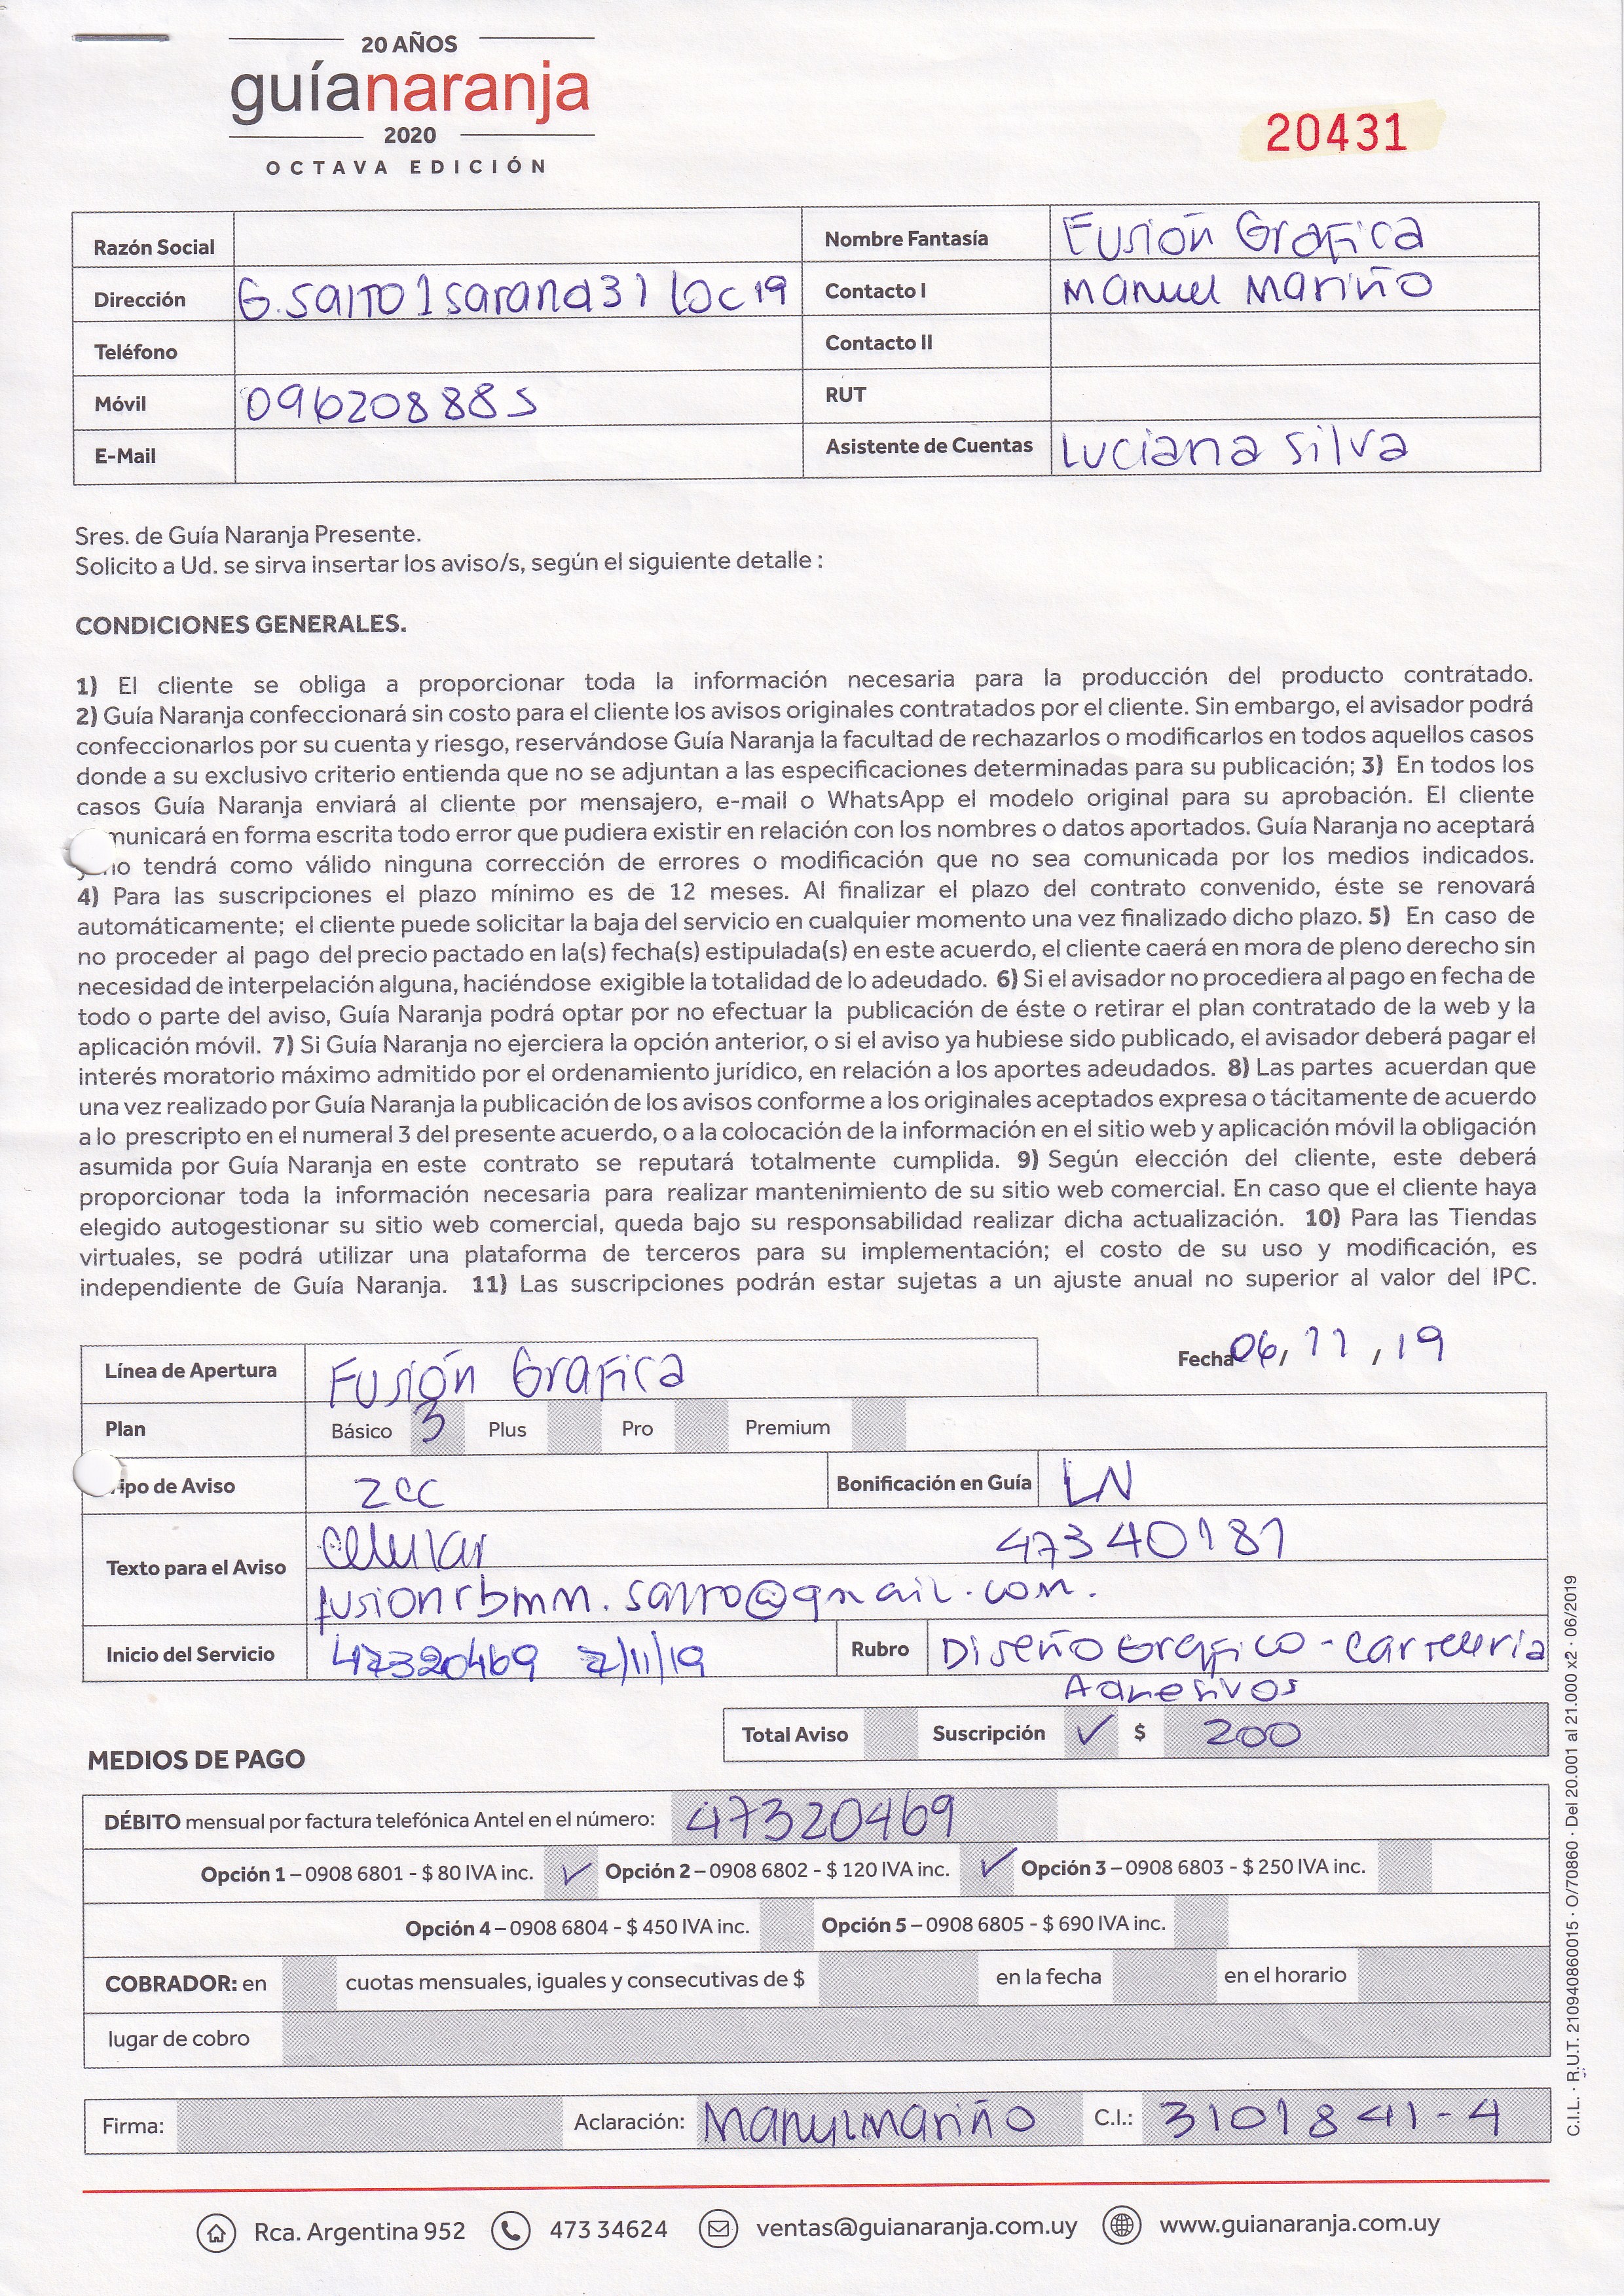 20 AÑOS
guíanaranja
2020
OCTAVA EDICIÓN
20431
Razón Social
Nombre Fantasía Fusión Grafica
Dirección G. Salto 1 sarandi 31 loc 19
Contacto I Manuel Mariño
Teléfono
Contacto II
Móvil 096208885
RUT
E-Mail
Asistente de Cuentas Luciana Silva
Sres. de Guía Naranja Presente.
Solicito a Ud. se sirva insertar los aviso/s, según el siguiente detalle :
CONDICIONES GENERALES.
1) El cliente se obliga a proporcionar toda la información necesaria para la producción del producto contratado.
2) Guía Naranja confeccionará sin costo para el cliente los avisos originales contratados por el cliente. Sin embargo, el avisador podrá
confeccionarlos por su cuenta y riesgo, reservándose Guía Naranja la facultad de rechazarlos o modificarlos en todos aquellos casos
donde a su exclusivo criterio entienda que no se adjuntan a las especificaciones determinadas para su publicación; 3) En todos los
casos Guía Naranja enviará al cliente por mensajero, e-mail o WhatsApp el modelo original para su aprobación. El cliente
municará en forma escrita todo error que pudiera existir en relación con los nombres o datos aportados. Guía Naranja no aceptará
y no tendrá como válido ninguna corrección de errores o modificación que no sea comunicada por los medios indicados.
4) Para las suscripciones el plazo mínimo es de 12 meses. Al finalizar el plazo del contrato convenido, éste se renovará
automáticamente; el cliente puede solicitar la baja del servicio en cualquier momento una vez finalizado dicho plazo. 5) En caso de
no proceder al pago del precio pactado en la(s) fecha(s) estipulada(s) en este acuerdo, el cliente caerá en mora de pleno derecho sin
necesidad de interpelación alguna, haciéndose exigible la totalidad de lo adeudado. 6) Si el avisador no procediera al pago en fecha de
todo o parte del aviso, Guía Naranja podrá optar por no efectuar la publicación de éste o retirar el plan contratado de la web y la
aplicación móvil. 7) Si Guía Naranja no ejerciera la opción anterior, o si el aviso ya hubiese sido publicado, el avisador deberá pagar el
interés moratorio máximo admitido por el ordenamiento jurídico, en relación a los aportes adeudados. 8) Las partes acuerdan que
una vez realizado por Guía Naranja la publicación de los avisos conforme a los originales aceptados expresa o tácitamente de acuerdo
a lo prescripto en el numeral 3 del presente acuerdo, o a la colocación de la información en el sitio web y aplicación móvil la obligación
asumida por Guía Naranja en este contrato se reputará totalmente cumplida. 9) Según elección del cliente, este deberá
proporcionar toda la información necesaria para realizar mantenimiento de su sitio web comercial. En caso que el cliente haya
elegido autogestionar su sitio web comercial, queda bajo su responsabilidad realizar dicha actualización. 10) Para las Tiendas
virtuales, se podrá utilizar una plataforma de terceros para su implementación; el costo de su uso y modificación, es
independiente de Guía Naranja. 11) Las suscripciones podrán estar sujetas a un ajuste anual no superior al valor del IPC.
Fecha 06/11/19
Línea de Apertura Fusión Grafica
Plan Básico 3 Plus Pro Premium
ipo de Aviso 2cc Bonificación en Guía LN
Texto para el Aviso Celular 473 40181
fusionrbmm.salto@gmail.com.
Inicio del Servicio 47320469 7/11/19 Rubro Diseño Grafico - Carteleria
Adhesivos
Total Aviso Suscripción ✓ $ 200
MEDIOS DE PAGO
DÉBITO mensual por factura telefónica Antel en el número: 47320469
Opción 1 – 0908 6801 - $ 80 IVA inc. ✓ Opción 2 – 0908 6802 - $ 120 IVA inc. ✓ Opción 3 – 0908 6803 - $ 250 IVA inc.
Opción 4 – 0908 6804 - $ 450 IVA inc. Opción 5 – 0908 6805 - $ 690 IVA inc.
COBRADOR: en cuotas mensuales, iguales y consecutivas de $ en la fecha en el horario
lugar de cobro
Firma: Aclaración: Manuel Mariño C.I.: 3101841-4
Rca. Argentina 952 473 34624 ventas@guianaranja.com.uy www.guianaranja.com.uy
C.I.L. · R.U.T. 210940860015 · O/70860 · Del 20.001 al 21.000 x2 · 06/2019